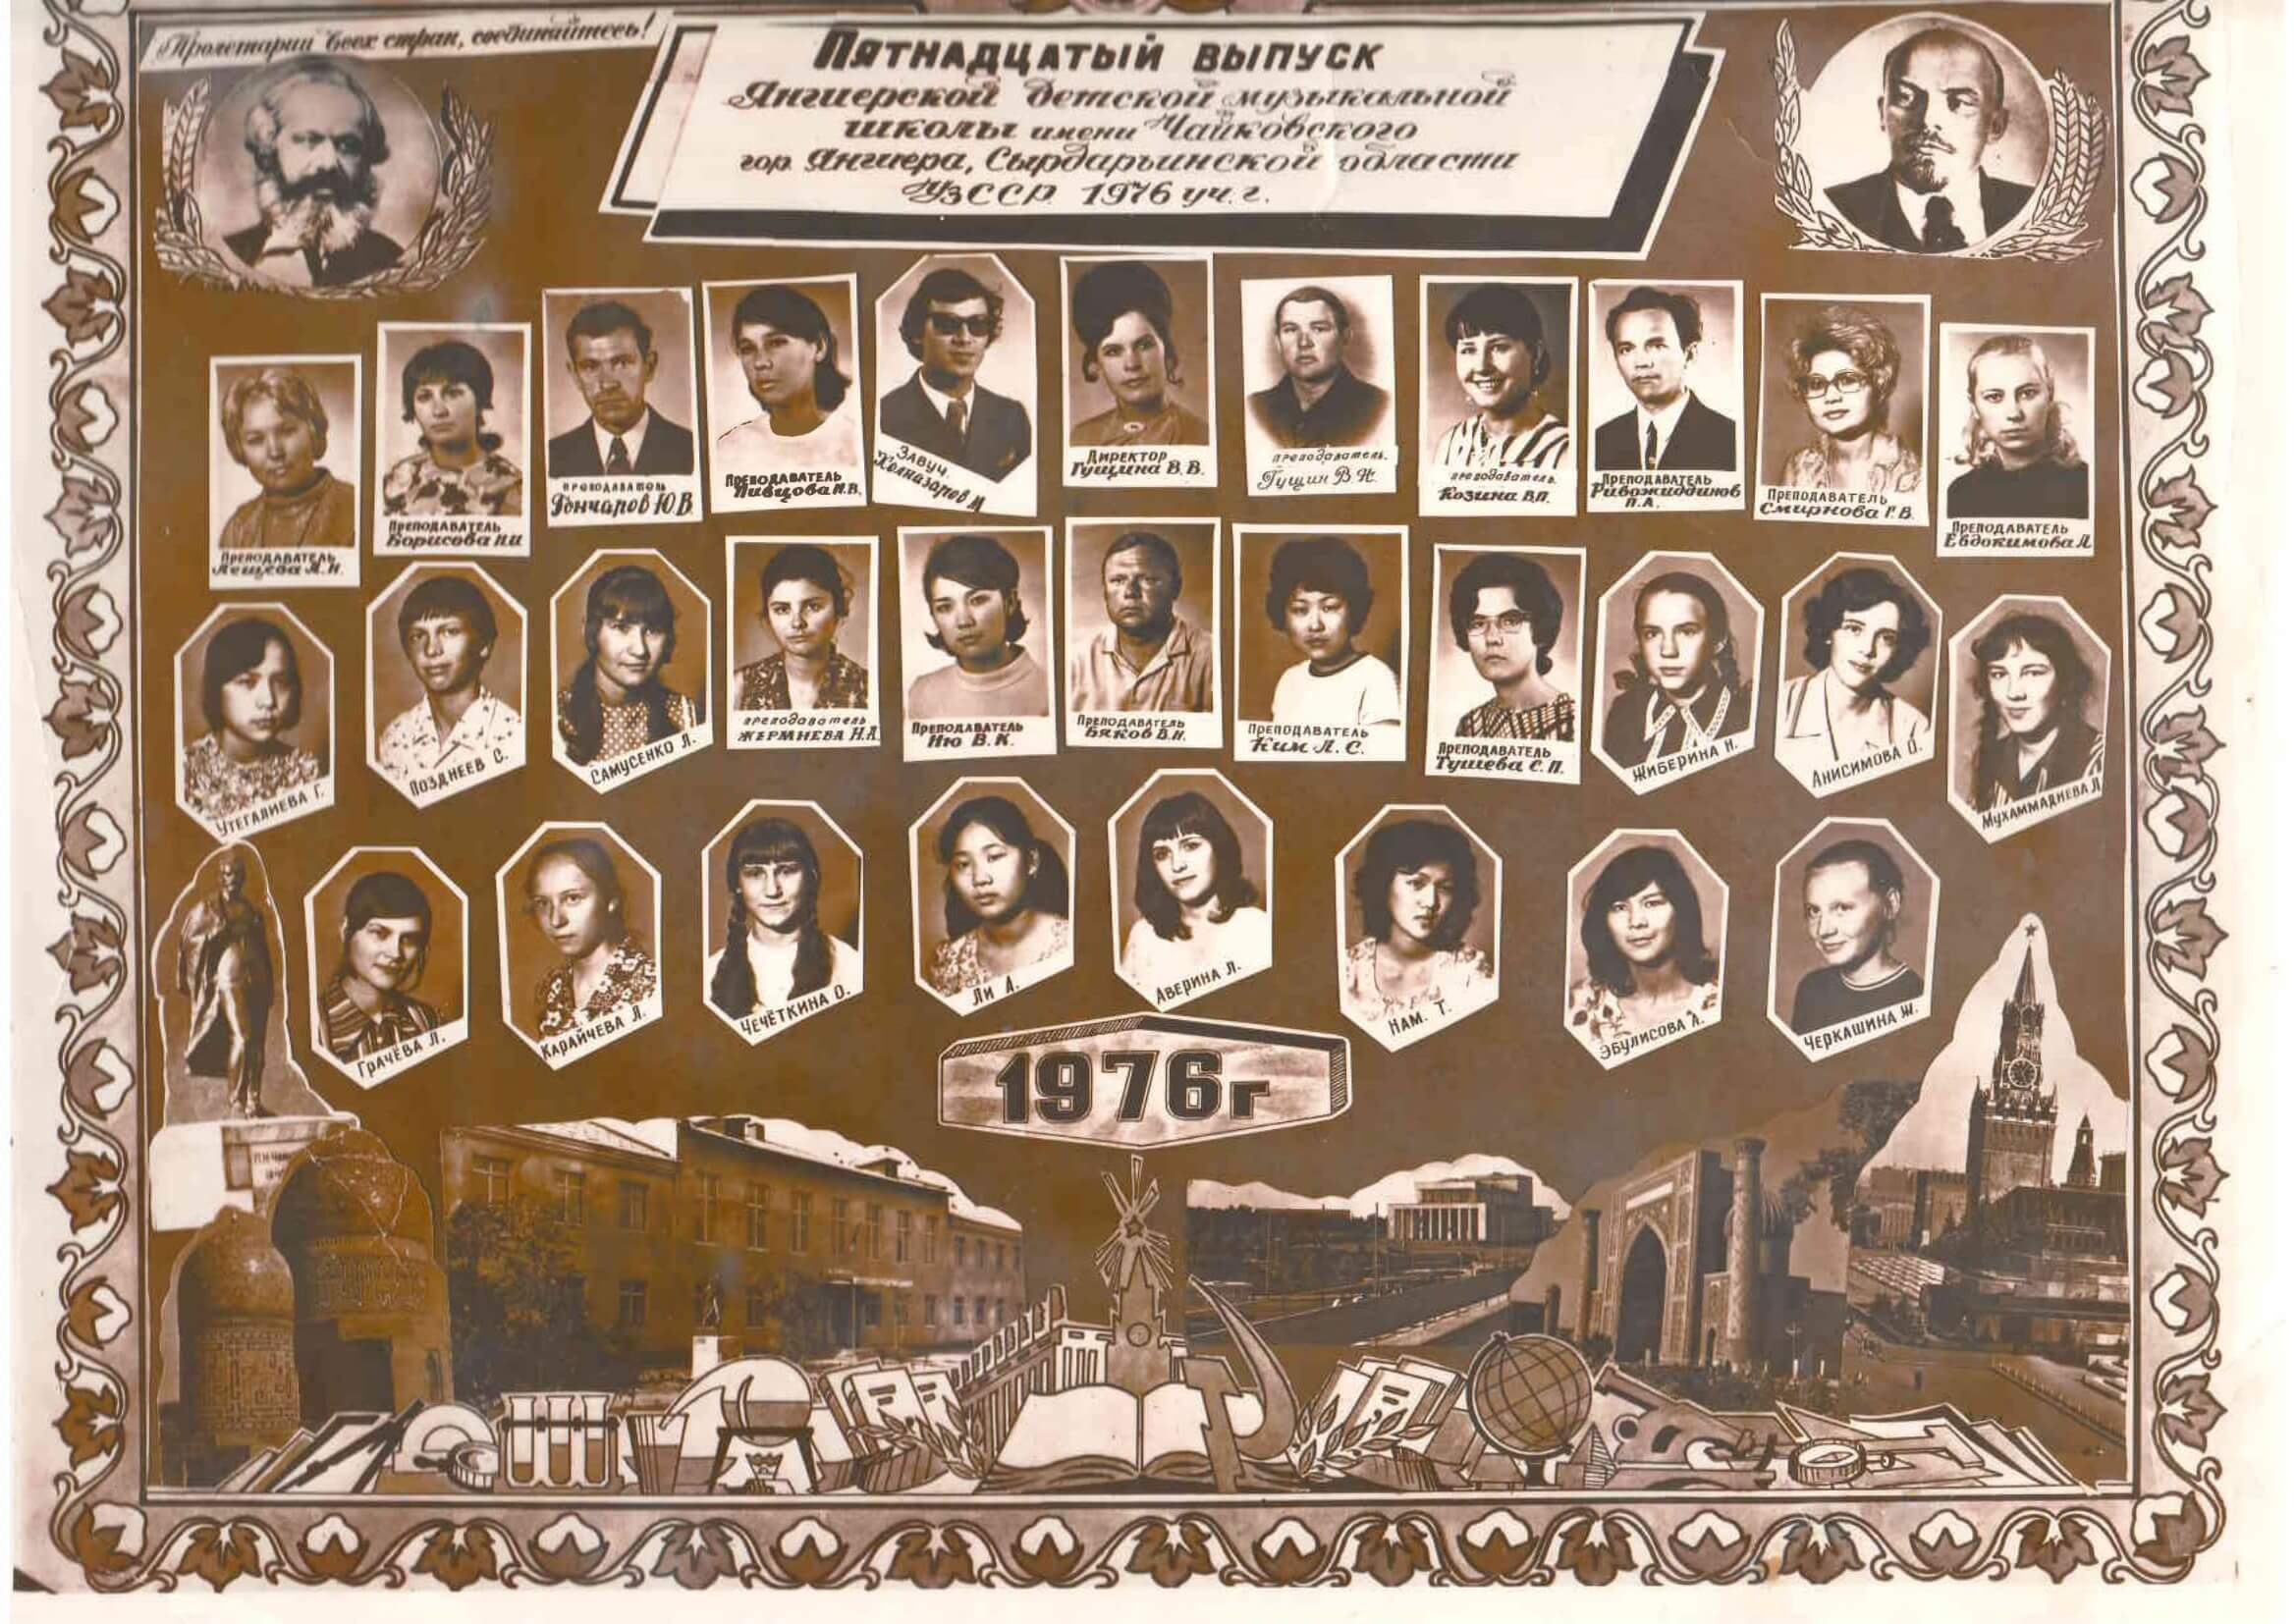 Пролетарии всех стран, соединяйтесь!
Пятнадцатый выпуск
Янгиерской детской музыкальной
школы имени Чайковского
гор. Янгиера, Сырдарьинской области
УзССР 1976 уч. г.
Преподаватель
Лещева А.Н.
Преподаватель
Борисова Н.И
преподаватель
Гончаров Ю.В.
Преподаватель
Пивцова Н.В.
Завуч.
Директор
Гущина В.В.
преподаватель.
Гущин В.Н.
преподаватель.
Козина В.П.
Преподаватель
Рибожиддинов
П.А.
Преподаватель
Смирнова Г.В.
Преподаватель
Евдокимова Л
Утегалиева Г.
Позднеев С.
Самусенко Л.
преподаватель
Жермнева Н.А.
Преподаватель
Ню В.К.
Преподаватель
Бяков В.Н.
Преподаватель
Ким Л.С.
Преподаватель
Тушева С.П.
Жиберина Н.
Анисимова О.
Мухаммадиева Л
Грачёва Л.
Карайчева Л.
Чечёткина О.
Ли А.
Аверина Л.
Нам. Т.
Эбулисова А.
Черкашина Ж.
1976г